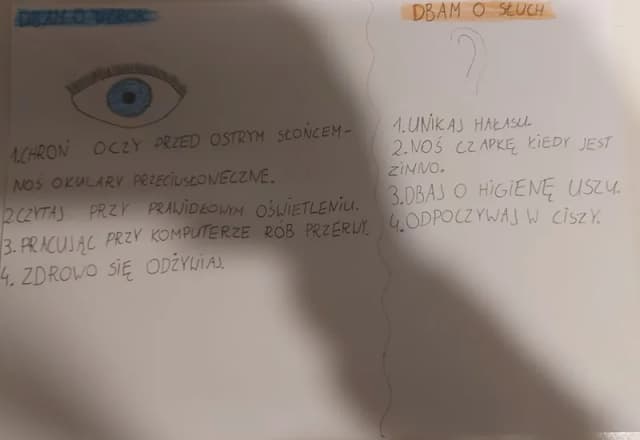 DBAM O WZROK
1. CHROŃ OCZY PRZED OSTRYM SŁOŃCEM-
NOŚ OKULARY PRZECIWSŁONECZNE.
2. CZYTAJ PRZY PRAWIDŁOWYM OŚWIETLENIU.
3. PRACUJĄC PRZY KOMPUTERZE RÓB PRZERWY.
4. ZDROWO SIĘ ODŻYWIAJ.
DBAM O SŁUCH
1. UNIKAJ HAŁASU.
2. NOŚ CZAPKĘ KIEDY JEST
ZIMNO.
3. DBAJ O HIGIENĘ USZU.
4. ODPOCZYWAJ W CISZY.